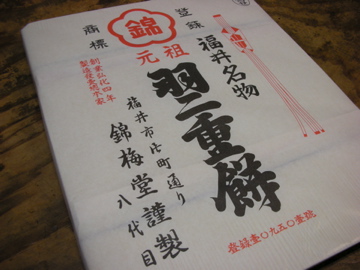 登録
商標
錦
元祖
福井名物
羽二重餅
創業弘化四年
福井市片町通り
錦梅堂謹製
八代目
登録壹〇九五〇壹號